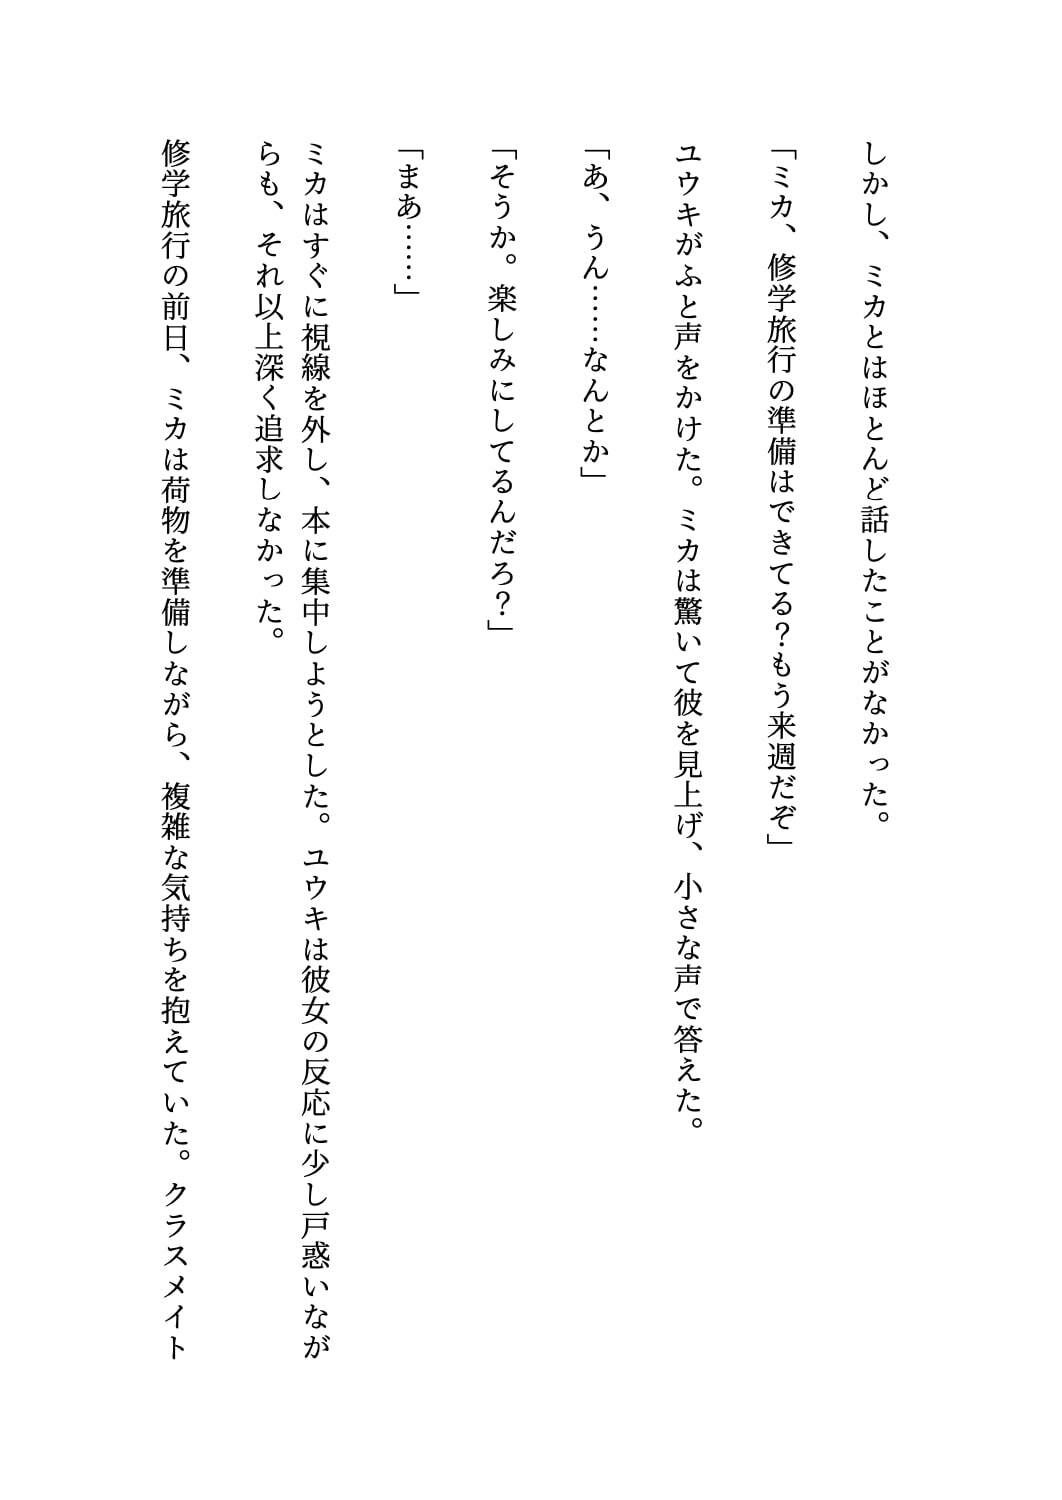 しかし、ミカとはほとんど話したことがなかった。
「ミカ、修学旅行の準備はできてる？もう来週だぞ」
ユウキがふと声をかけた。ミカは驚いて彼を見上げ、小さな声で答えた。
「あ、うん……なんとか」
「そうか。楽しみにしてるんだろ？」
「まあ……」
ミカはすぐに視線を外し、本に集中しようとした。ユウキは彼女の反応に少し戸惑いなが
らも、それ以上深く追求しなかった。
修学旅行の前日、ミカは荷物を準備しながら、複雑な気持ちを抱えていた。クラスメイト